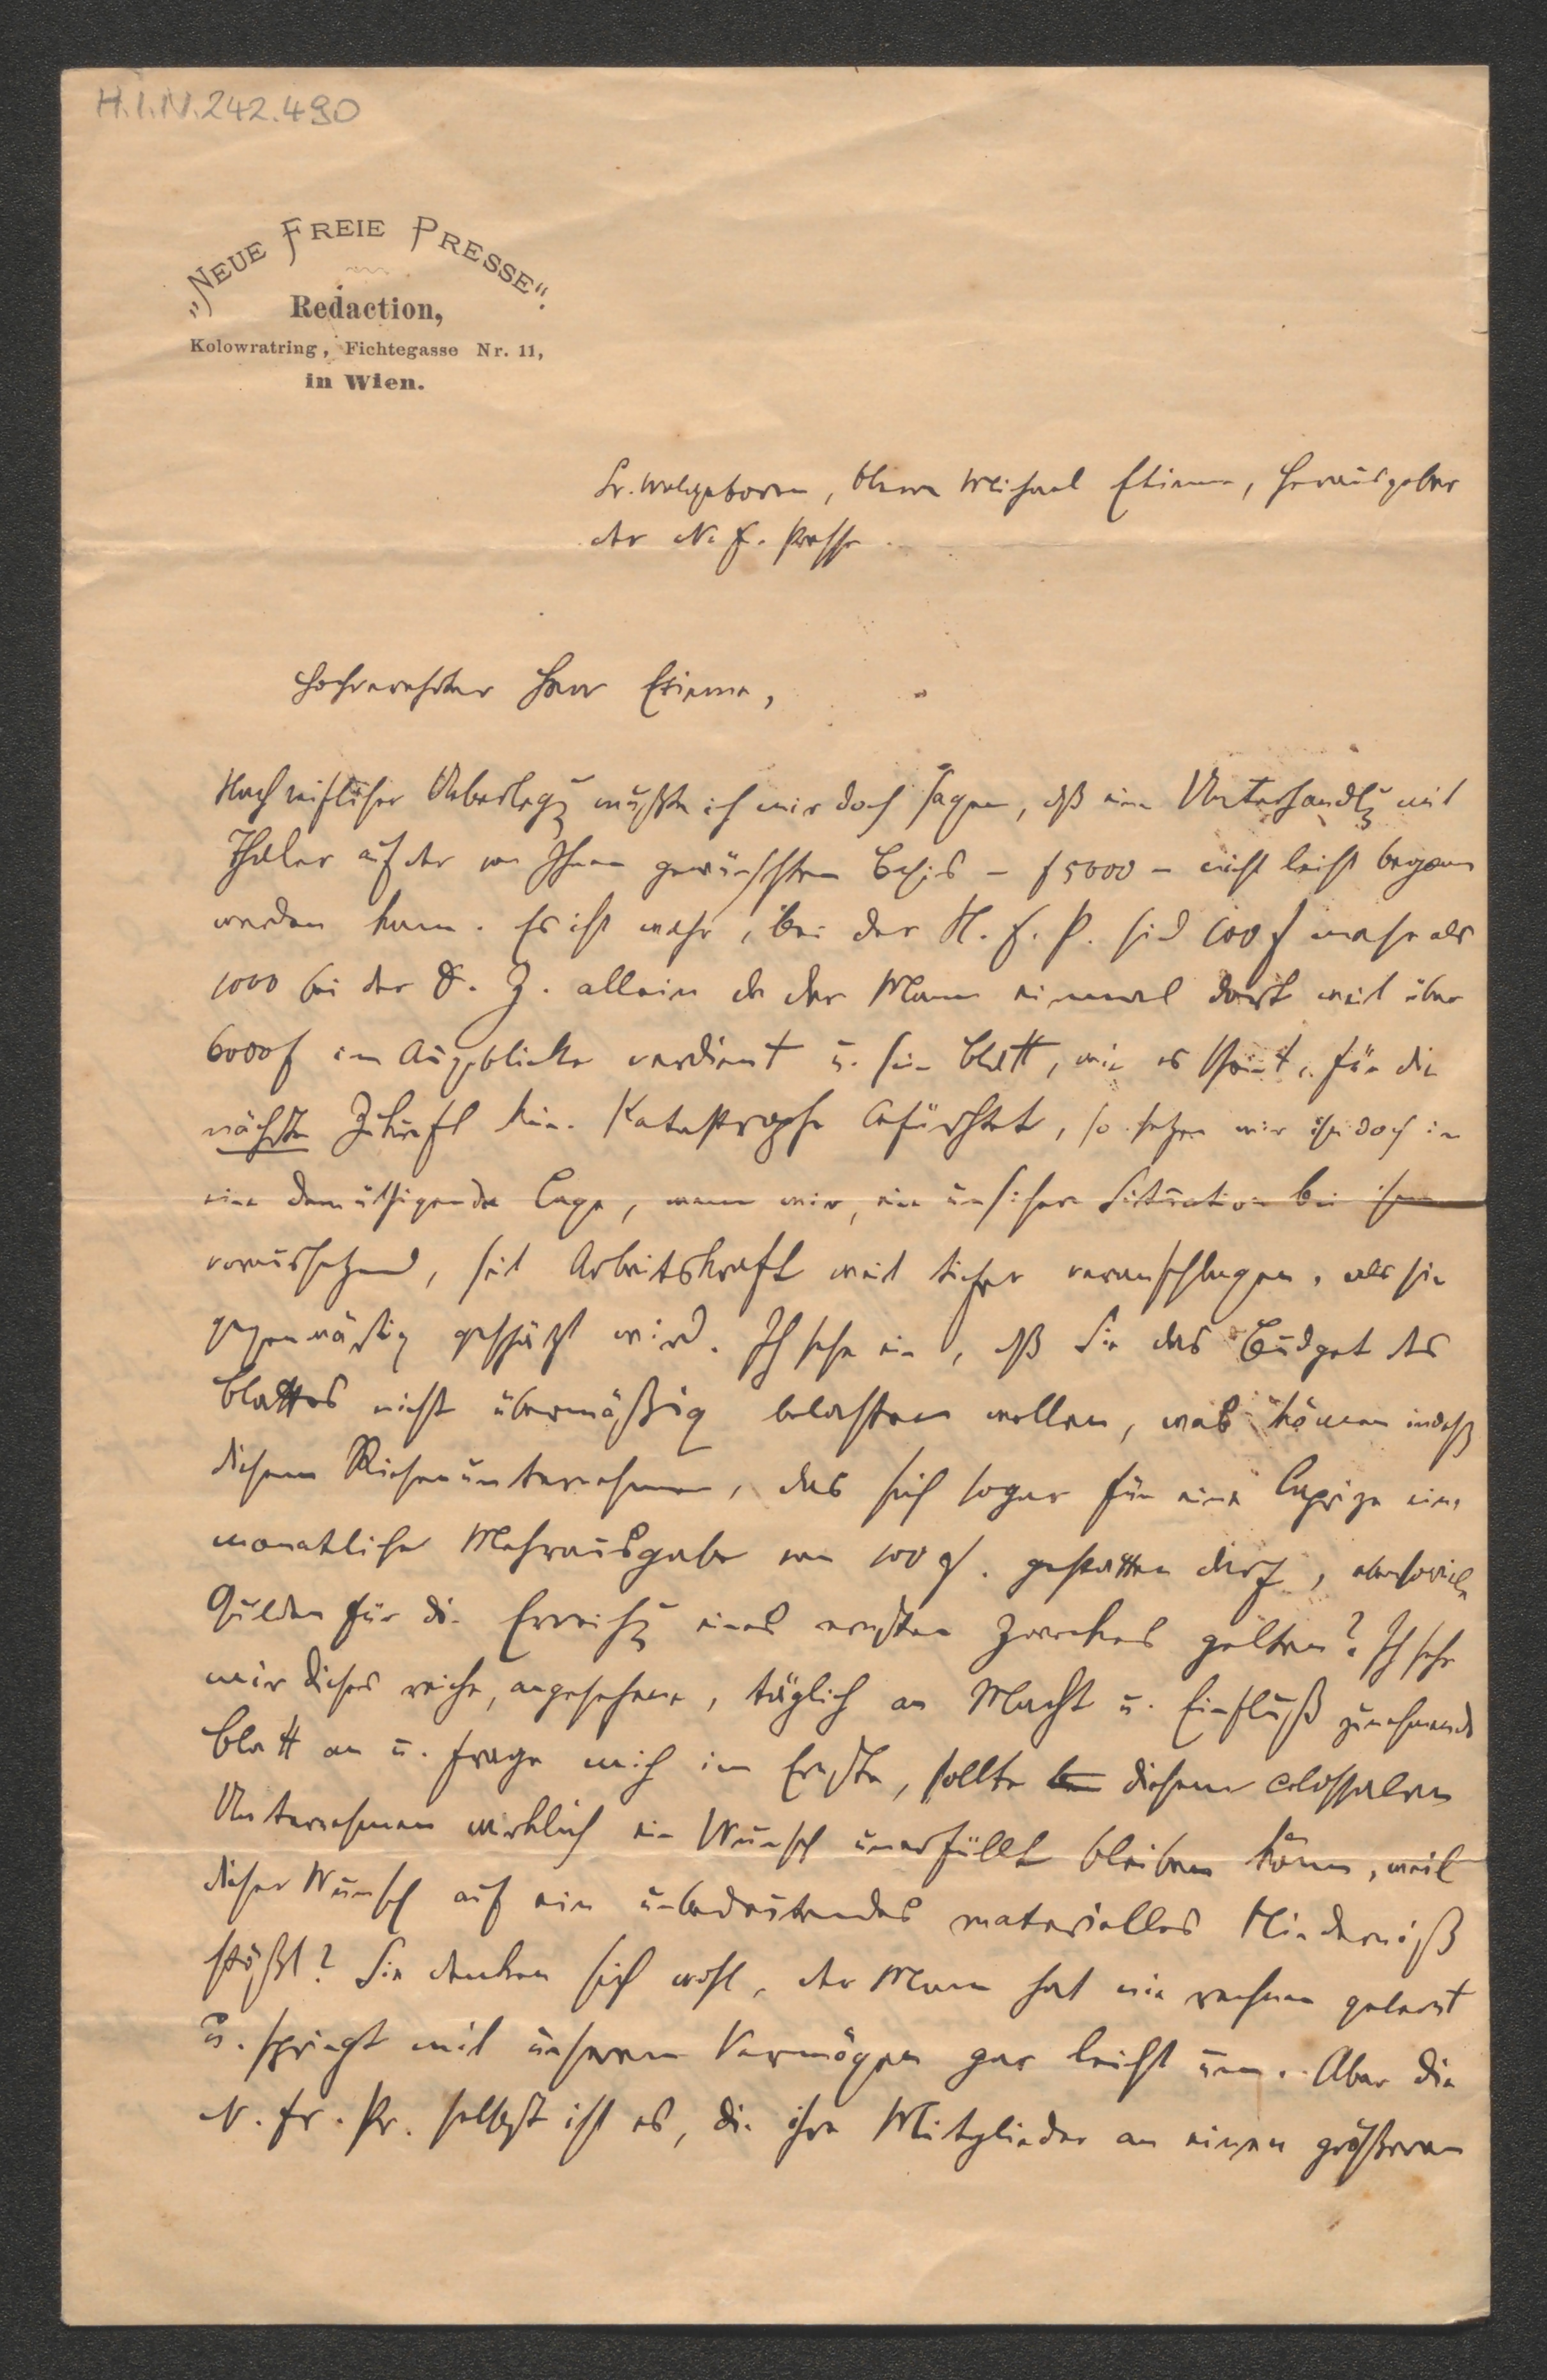 H.I.N. 242.490
„NEUE FREIE PRESSE“.
Redaction,
Kolowratring, Fichtegasse Nr. 11,
in Wien.
Sr. Wolgeboren, Herrn Michael Etienne, Herausgeber
der N. f. Presse.
Hochverehrter Herr Etienne,
Nach reiflicher Ueberlegg mußte ich mir doch sagen, dß eine Unterhandlg mit
Thaler auf der von Ihnen gewünschten Basis – f 5000 – nicht leicht begonnen
werden kann. Es ist wahr, bei der N. f. P. sid 100 f mehr als
1000 bei der D. Z. allein da der Mann einmal dort weit über
6000 f im Augenblicke verdient u. sein Blatt, wie es scheint, für die
nächste Zukunft keine Katastrophe befürchtet, so setzen wir ihn doch in
eine demüthigende Lage, wenn wir, eine unsichere Situation bei ihm
voraussetzend, seine Arbeitskraft weit tiefer veranschlagen, als sie
gegenwärtig geschätzt wird. Ich sehe ein, dß Sie das Budget des
Blattes nicht übermäßig belasten wollen, was können indeß
diesem Riesenunternehmen, das sich sogar für eine Caprize eine
monatliche Mehrausgabe von 100 f. gestatten darf, ebensoviele
Gulden für die Erreichg eines ernsten Zweckes gelten? Ich sehe
mir dieses reiche, angesehene, täglich an Macht u. Einfluß zunehmende
Blatt an u. frage mich im Ernste, sollte diesem colossalen
Unternehmen wirklich ein Wunsch unerfüllt bleiben können, weil
dieser Wunsch auf ein unbedeutendes materielles Hinderniß
stößt? Sie denken sich wohl, der Mann hat nie rechnen gelernt
u. springt mit unserem Vermögen gar leicht um. Aber die
N. Fr. Pr. selbst ist es, die ihre Mitglieder an einen größeren